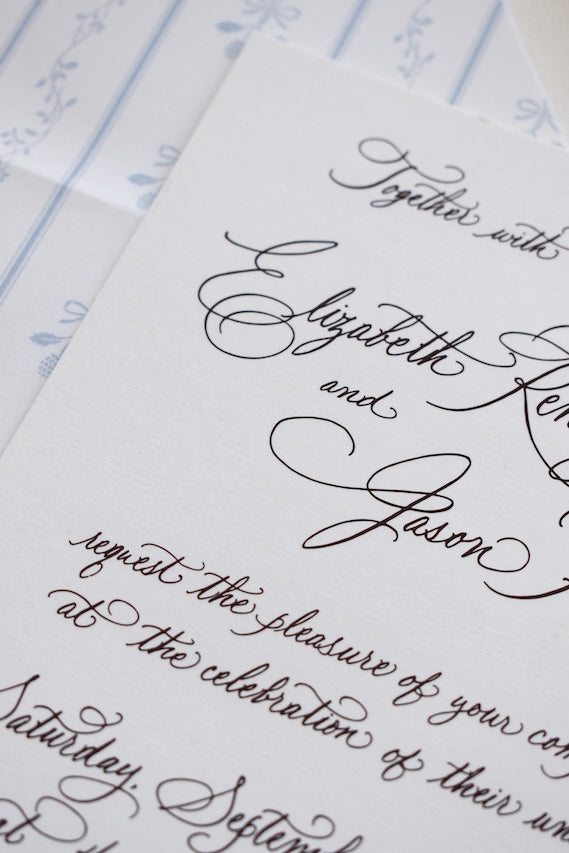 Together with
Elizabeth
and
Jason
request the pleasure of your
at the celebration of their
Saturday,
at